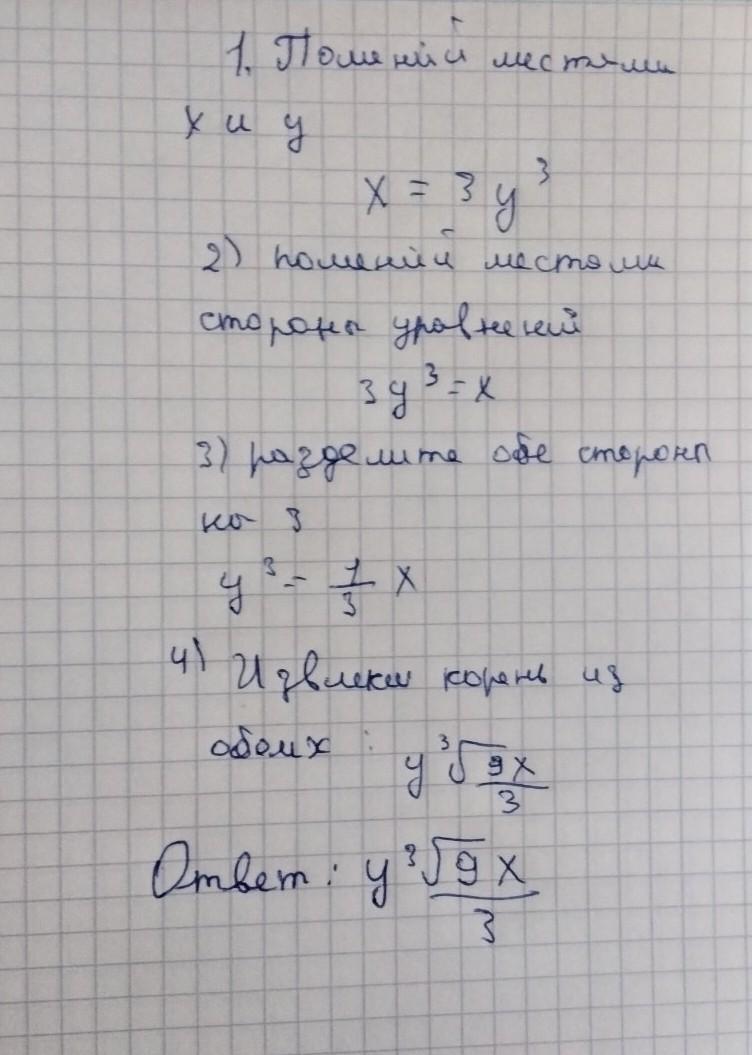 1. Поменяй местами
x и y
x = 3y³
2) поменяй местами
стороны уравнений
3y³ = x
3) разделите обе стороны
на 3
y³ = 1/3 x
4) Извлеки корень из
обоих :
y ³√9x / 3
Ответ : y ³√9x / 3